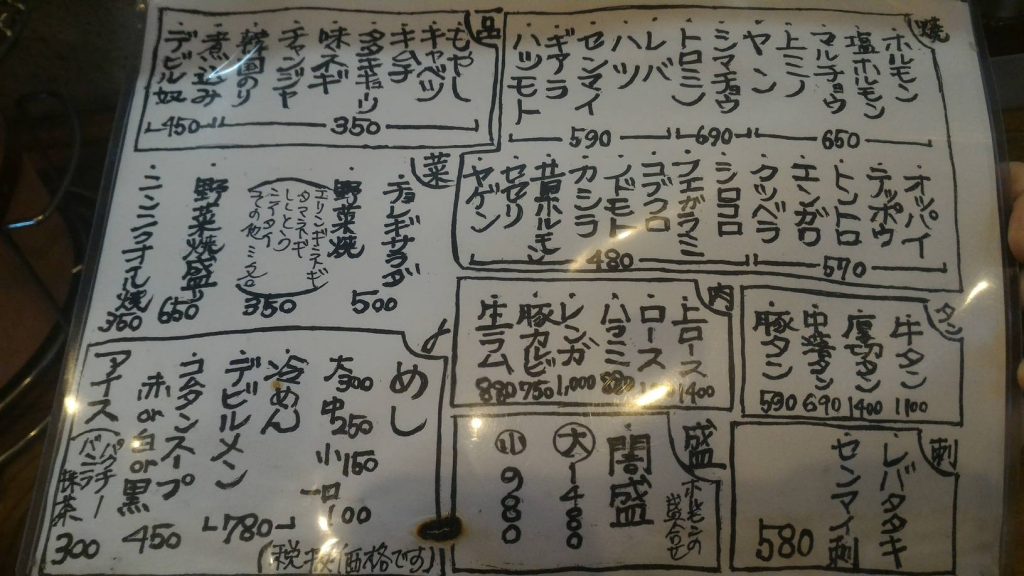 焼
・ホルモン
・塩ホルモン
・マルチョウ
・上ミノ
・ヤン
650
・シマチョウ
・トロミノ
690
・レバ
・ハツ
・センマイ
・ギアラ
・ハツモト
590
・オッパイ
・テッポウ
・トントロ
・エンガワ
・クツベラ
570
・シロコロ
・フエガラミ
・コブクロ
・ノドモト
・カシラ
・セセリ
・ヤゲン
480
品
・もやし
・キャベツ
・キムチ
・味ネギ
・チャンジャ
・韓国のり
350
・煮込み
・デビル奴
450
菜
・チョレギサラダ
500
・野菜焼
エリンギ
タマネギ
ししとう
その他
350
・野菜焼盛り
650
・ニンニクオイル焼
350
タン
・牛タン
1100
・厚切タン
1400
690
・豚タン
590
肉
・上ロース
1400
・ロース
・ハラミ
・レンガ
1,000
・豚カルビ
750
・生ラム
880
刺
・レバタタキ
・センマイ刺
580
盛
ホルモンの盛合せ
闇盛
大 1480
小 980
めし
大300
中250
小150
一口100
・冷めん
・デビルメン
780
・コムタンスープ
赤or白or黒
450
・アイス
バニラ
抹茶
300
(税抜価格です)